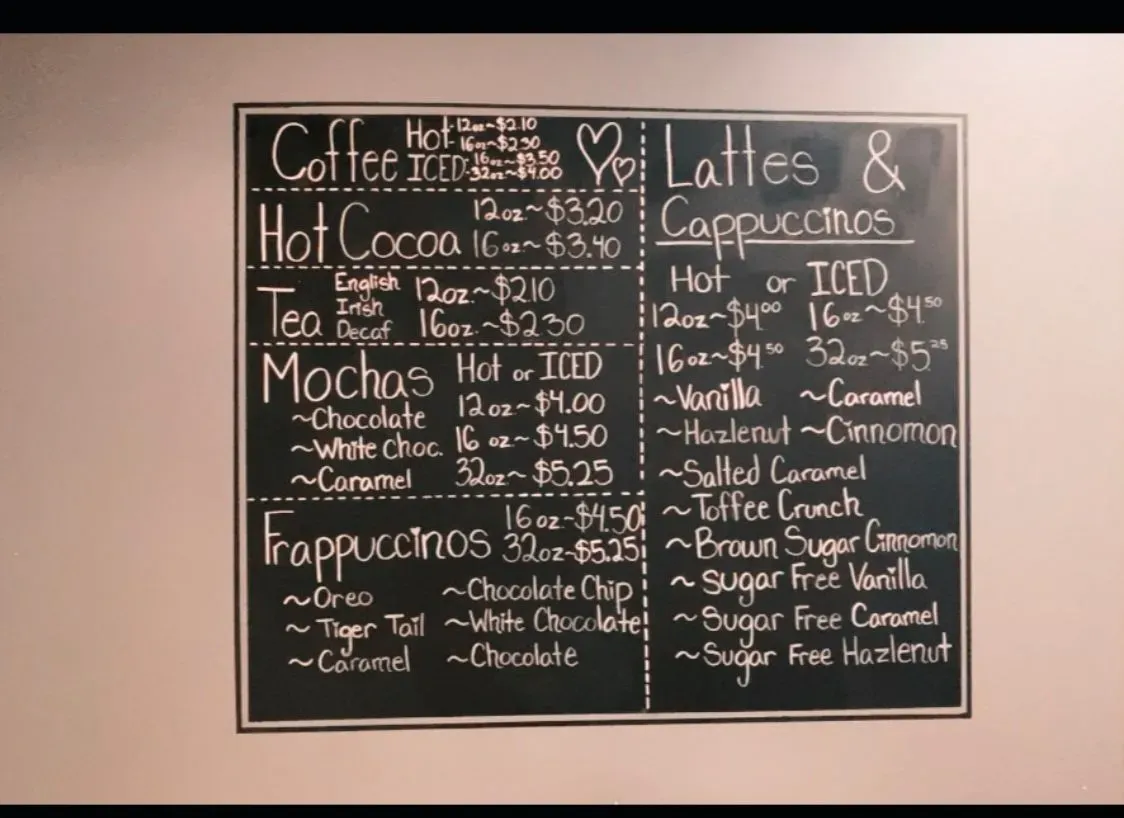 Coffee Hot- 12oz~$2.10
16oz~$2.30
ICED: 16oz~$3.50
32oz~$4.00
Hot Cocoa 12oz.~$3.20
16oz~$3.40
Tea English 12oz.~$2.10
Irish
Decaf 16oz.~$2.30
Mochas Hot or ICED
~Chocolate 12oz~$4.00
~White Choc. 16 oz~$4.50
~Caramel 32oz~$5.25
Frappuccinos 16oz~$4.50
32oz~$5.25
~Oreo ~Chocolate Chip
~Tiger Tail ~White Chocolate
~Caramel ~Chocolate
Lattes &
Cappuccinos
Hot or ICED
12oz~$4.00 16oz~$4.50
16oz~$4.50 32oz~$5.25
~Vanilla ~Caramel
~Hazlenut ~Cinnomon
~Salted Caramel
~Toffee Crunch
~Brown Sugar Cinnomon
~Sugar Free Vanilla
~Sugar Free Caramel
~Sugar Free Hazlenut